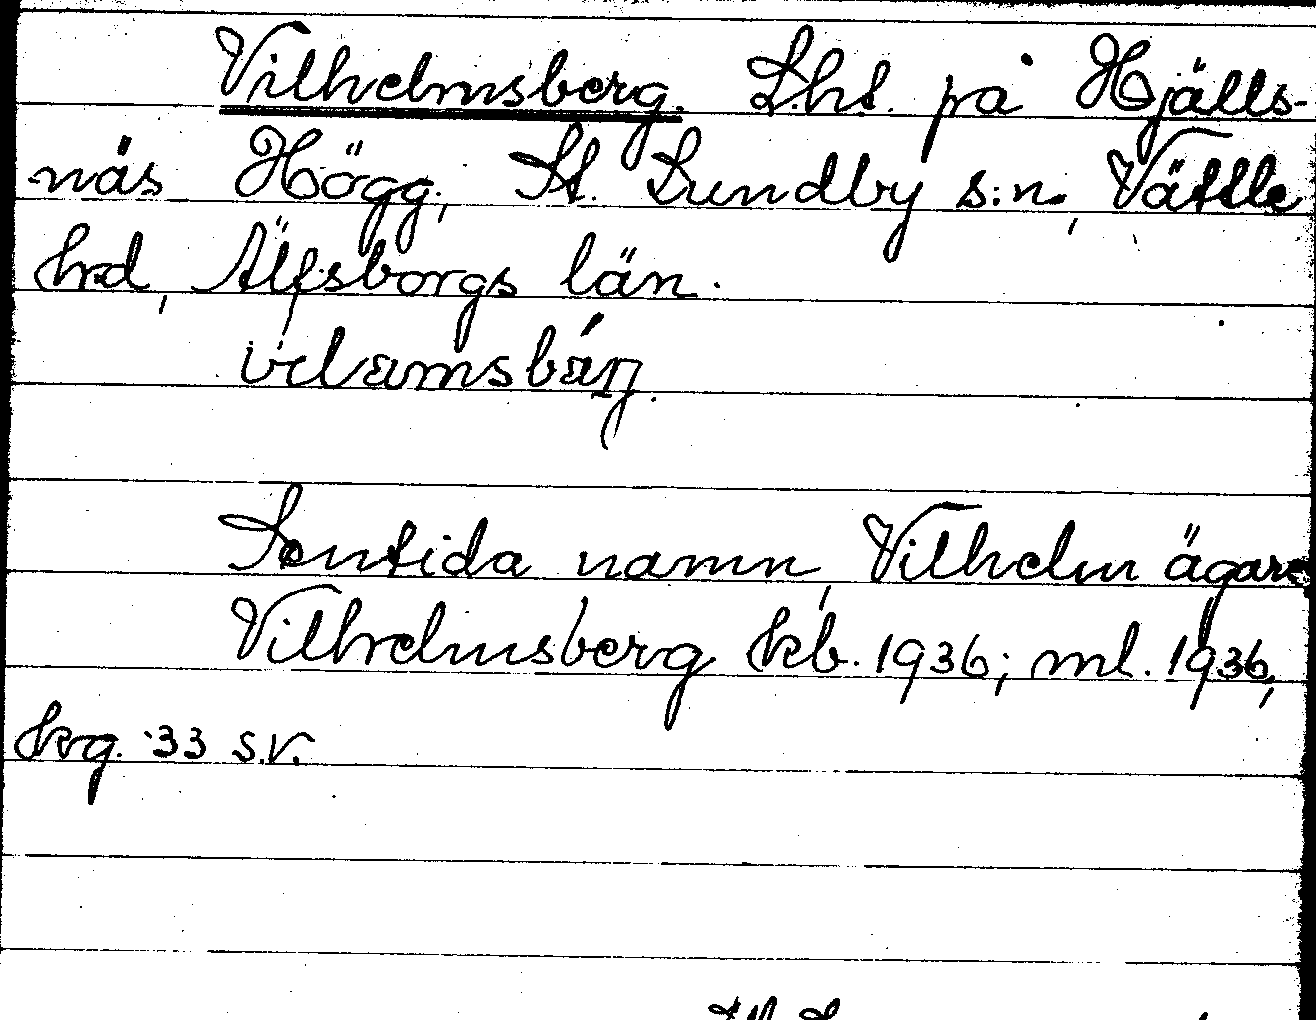 Vilhelmsberg. Lht. på Hjälls-
näs Högg, St. Lundby s:n, Vättle
hrd, Älfsborgs län.
Sentida namn, Vilhelm ägare
Vilhelmsberg kb. 1936; ml. 1936,
krg. '33 s.v.